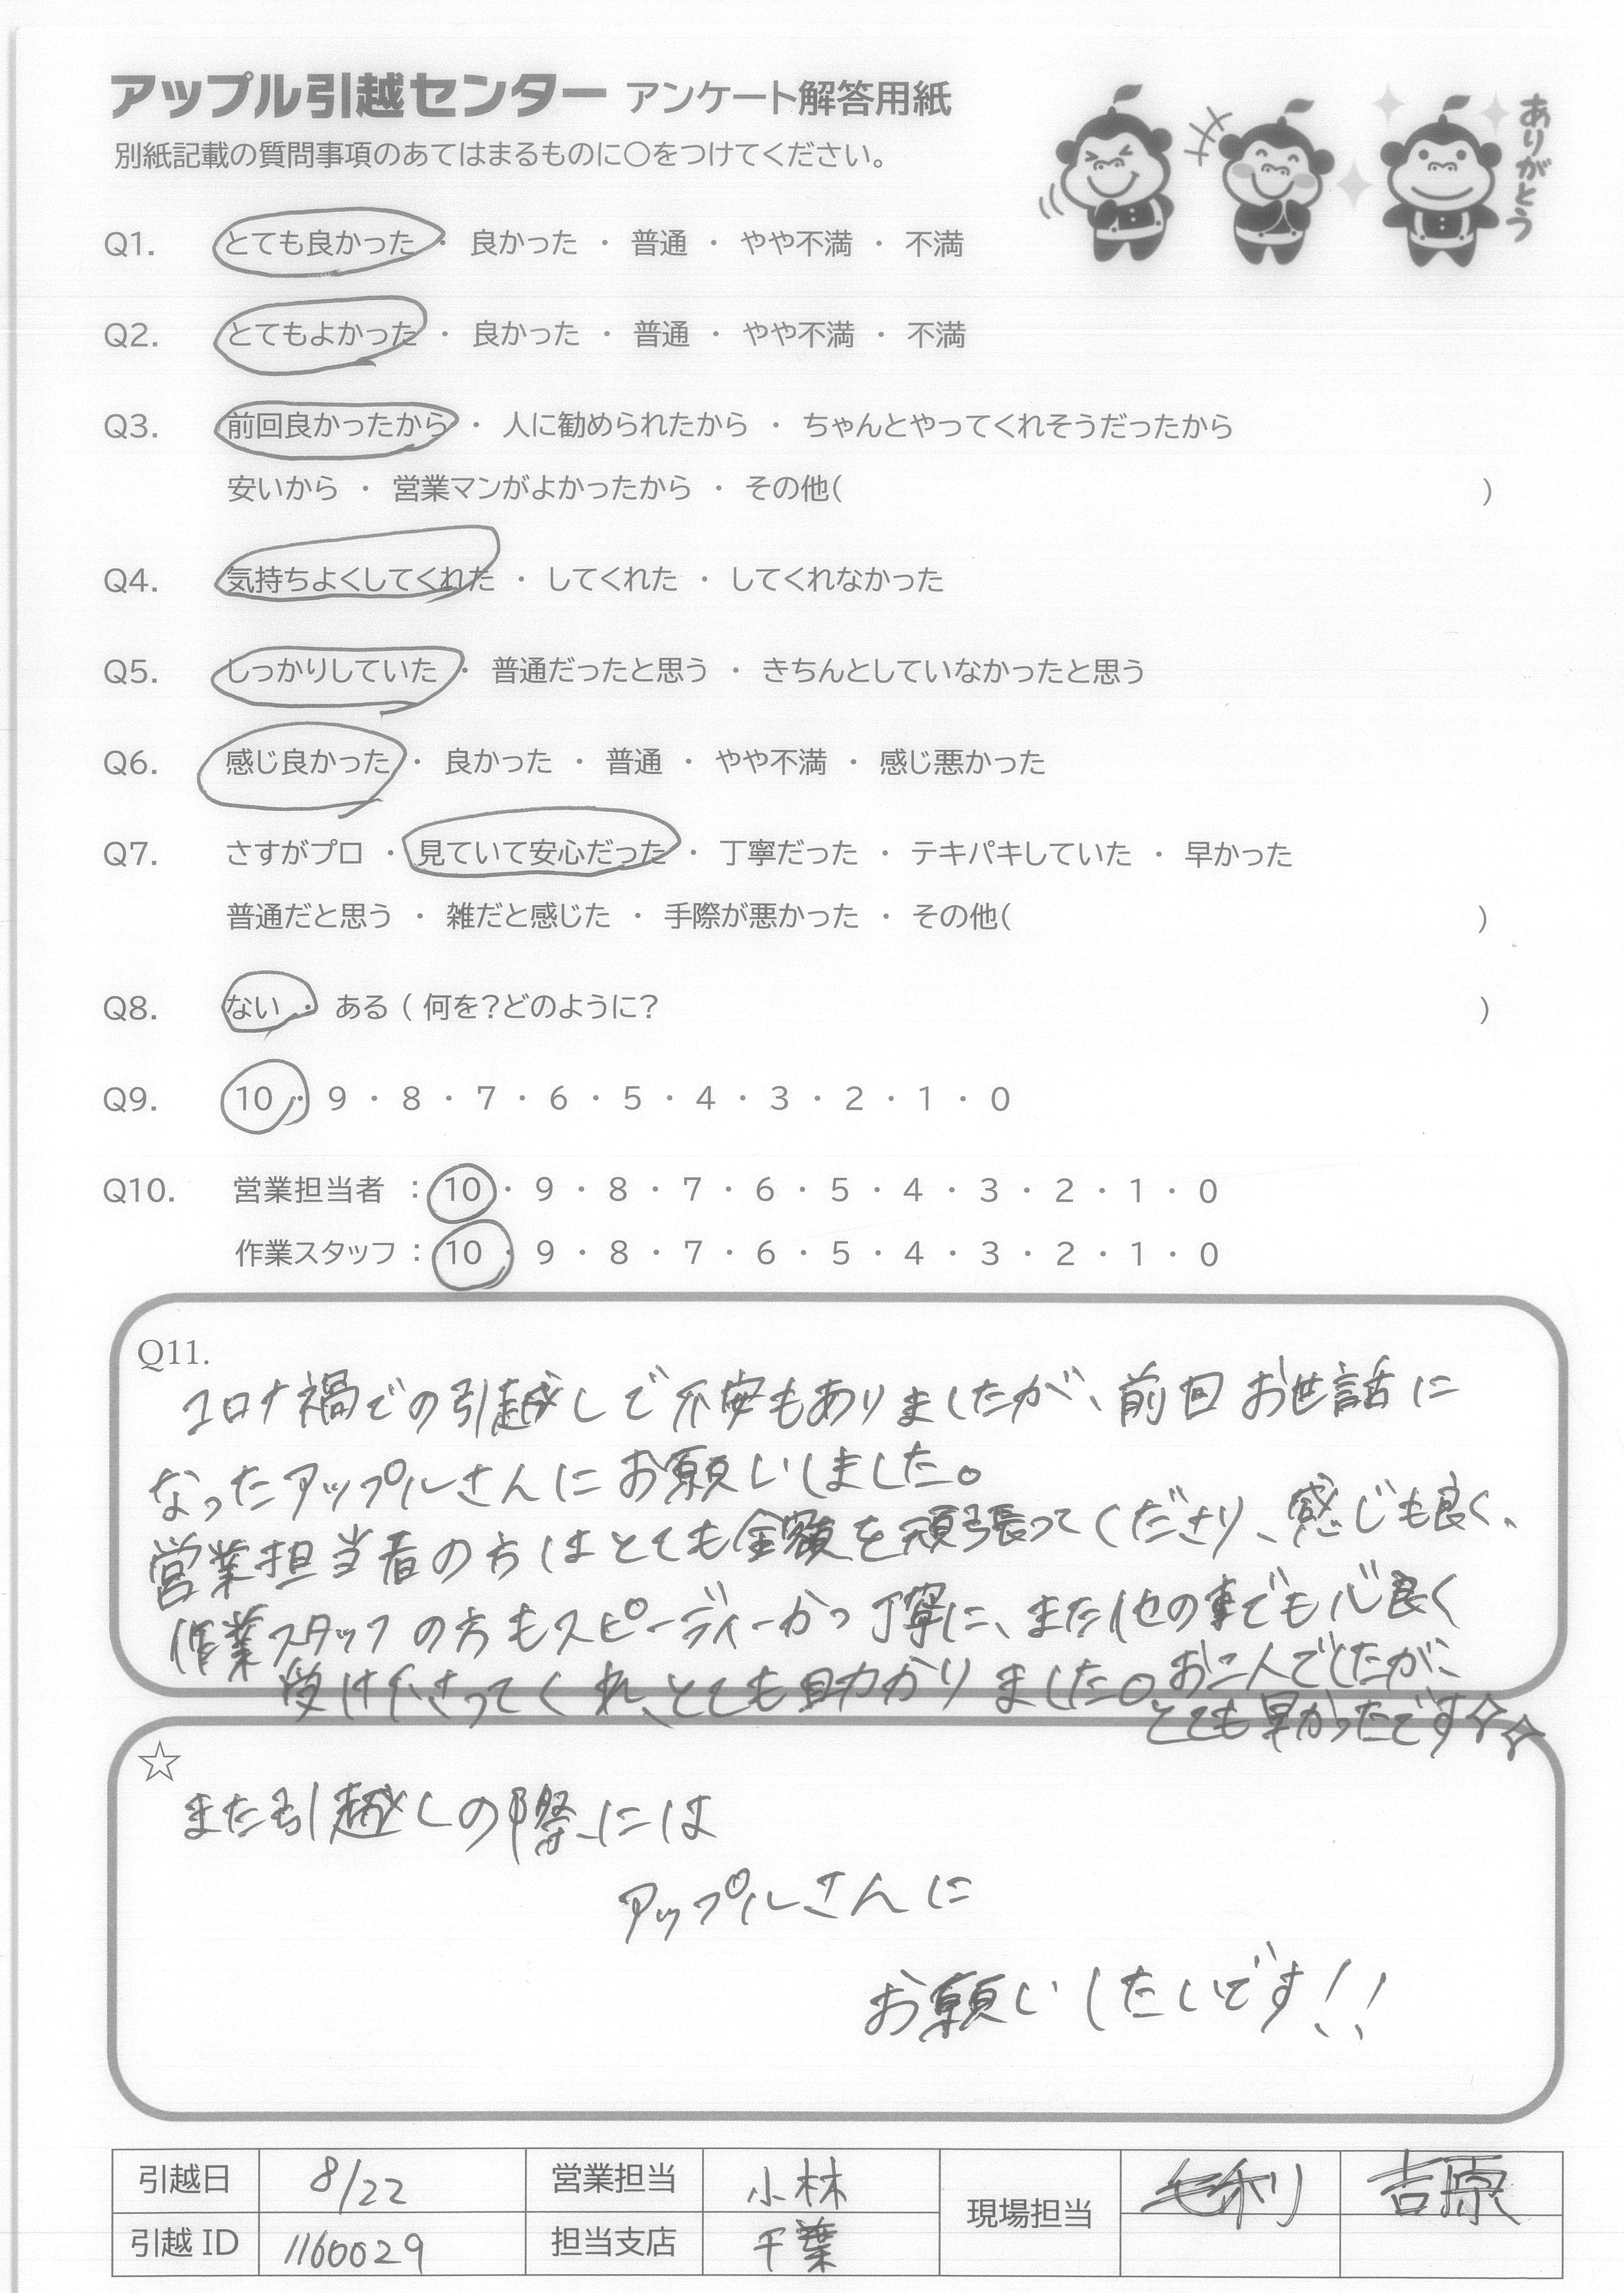 アップル引越センター アンケート解答用紙
別紙記載の質問事項のあてはまるものに〇をつけてください。
ありがとう
Q1. とても良かった ・ 良かった ・ 普通 ・ やや不満 ・ 不満
Q2. とてもよかった ・ 良かった ・ 普通 ・ やや不満 ・ 不満
Q3. 前回良かったから ・ 人に勧められたから ・ ちゃんとやってくれそうだったから
安いから ・ 営業マンがよかったから ・ その他( )
Q4. 気持ちよくしてくれた ・ してくれた ・ してくれなかった
Q5. しっかりしていた ・ 普通だったと思う ・ きちんとしていなかったと思う
Q6. 感じ良かった ・ 良かった ・ 普通 ・ やや不満 ・ 感じ悪かった
Q7. さすがプロ ・ 見ていて安心だった ・ 丁寧だった ・ テキパキしていた ・ 早かった
普通だと思う ・ 雑だと感じた ・ 手際が悪かった ・ その他( )
Q8. ない ・ ある ( 何を?どのように? )
Q9. 10 ・ 9 ・ 8 ・ 7 ・ 6 ・ 5 ・ 4 ・ 3 ・ 2 ・ 1 ・ 0
Q10. 営業担当者 : 10 ・ 9 ・ 8 ・ 7 ・ 6 ・ 5 ・ 4 ・ 3 ・ 2 ・ 1 ・ 0
作業スタッフ : 10 ・ 9 ・ 8 ・ 7 ・ 6 ・ 5 ・ 4 ・ 3 ・ 2 ・ 1 ・ 0
Q11.
コロナ禍での引越しで不安もありましたが、前回お世話に
なったアップルさんにお願いしました。
営業担当者の方はとても金額を頑張ってくださり、感じも良く、
作業スタッフの方もスピーディーかつ丁寧に、また他の事でも心良く
受け下さってくれ、とても助かりました。おニ人でしたが、
とても早かったです☆☆
☆
また引越しの際には
アップルさんに
お願いしたいです!!
引越日 8/22 営業担当 小林 現場担当 毛利 吉原
引越 ID 1160029 担当支店 千葉